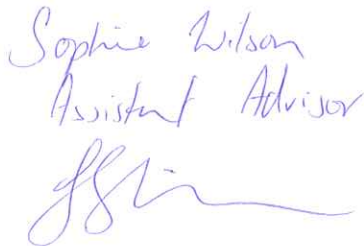 Sophie Wilson
Assistant Advisor